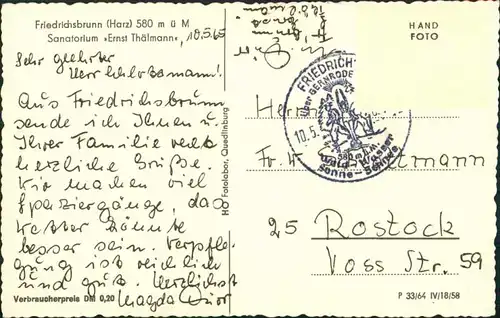 Friedrichsbrunn (Harz) 580 m ü M
Sanatorium »Ernst Thälmann«, 10.5.65
Sehr geehrter
Herr Schlottmann!
Aus Friedrichsbrunn
sende ich Ihnen u.
Ihrer Familie recht
herzliche Grüße.
Wir machen viel
Spaziergänge, das
Wetter könnte
besser sein. Verpfle-
gung ist reichlich
und gut. Herzlichst
Magda
Verbraucherpreis DM 0,20
HO Fotolabor, Quedlinburg
HAND
FOTO
FRIEDRICH
über BERNRODE
10.5.
580 m ü. M.
Wald - Wasser
Sonne - Schnee
Herrn
Fr. W. ttmann
25 Rostock
Voss Str. 59
P 33/64 IV/18/58